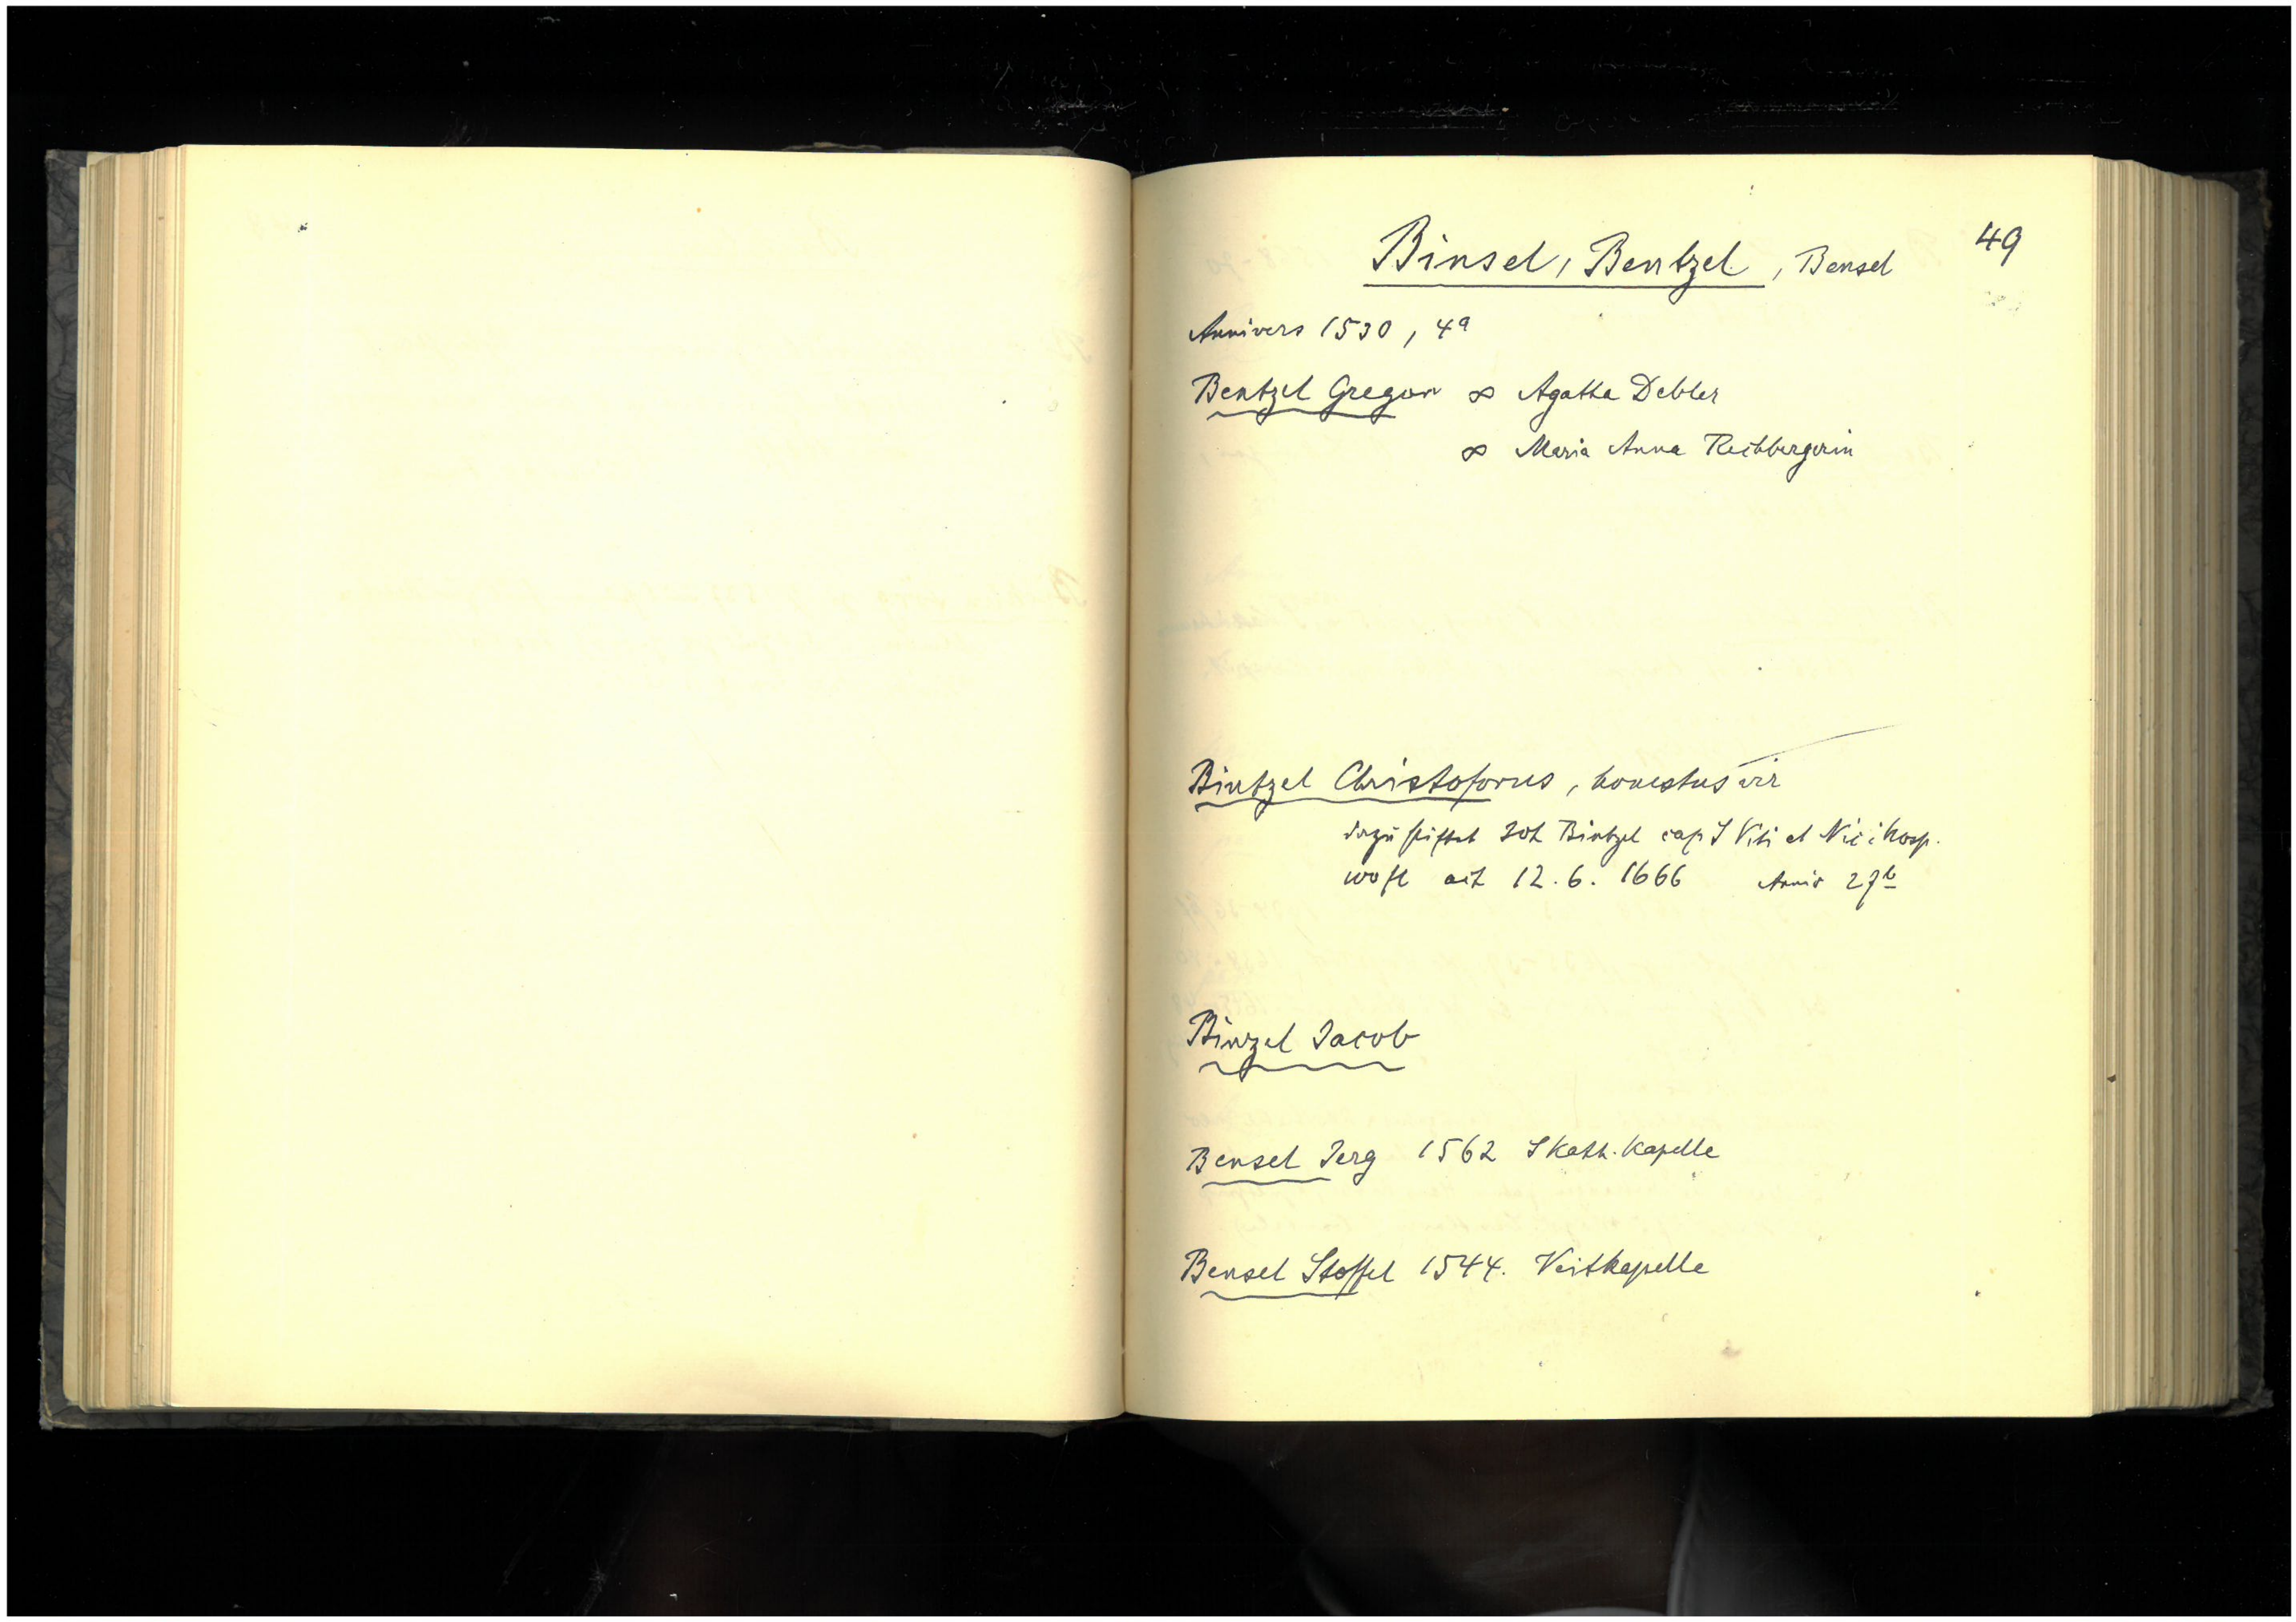 49
Binsel, Bentzel, Bensel
Annivers 1530, 4a
Bentzel Gregor ∞ Agatha Debler
∞ Maria Anna Rechbergerin
Bintzel Christoforus, honestus vir
dazu stiftet Joh Bintzel cap S Viti et hosp.
12.6.1666 Anniv 27b
Binzel Jacob
Bensel Jerg 1562 S Kath. Kapelle
Bensel Stoffel 1544. Veitkapelle